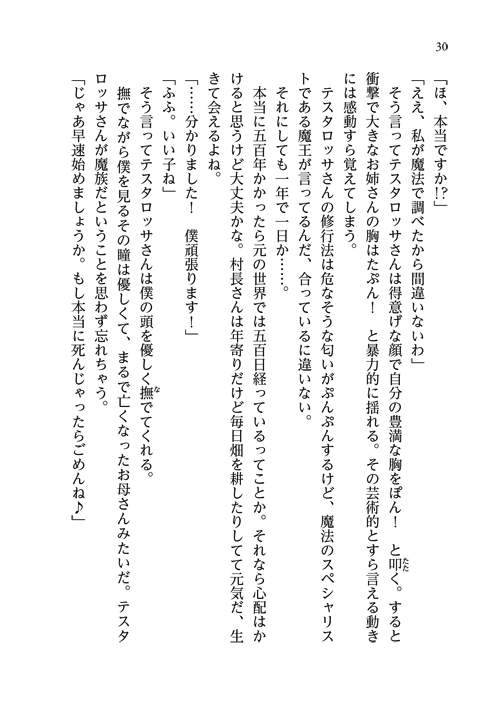 30
「ほ、本当ですか!?」
「ええ、私が魔法で調べたから間違いないわ」
そう言ってテスタロッサさんは得意げな顔で自分の豊満な胸をぽん！　と叩く。すると
衝撃で大きなお姉さんの胸はたぷん！　と暴力的に揺れる。その芸術的とすら言える動き
には感動すら覚えてしまう。
テスタロッサさんの修行法は危なそうな匂いがぷんぷんするけど、魔法のスペシャリス
トである魔王が言ってるんだ、合っているに違いない。
それにしても一年で一日か……。
本当に五百年かかったら元の世界では五百日経っているってことか。それなら心配はか
けると思うけど大丈夫かな。村長さんは年寄りだけど毎日畑を耕したりしてて元気だ、生
きて会えるよね。
「……分かりました！　僕頑張ります！」
「ふふ。いい子ね」
そう言ってテスタロッサさんは僕の頭を優しく撫でてくれる。
撫でながら僕を見るその瞳は優しくて、まるで亡くなったお母さんみたいだ。テスタ
ロッサさんが魔族だということを思わず忘れちゃう。
「じゃあ早速始めましょうか。もし本当に死んじゃったらごめんね♪」